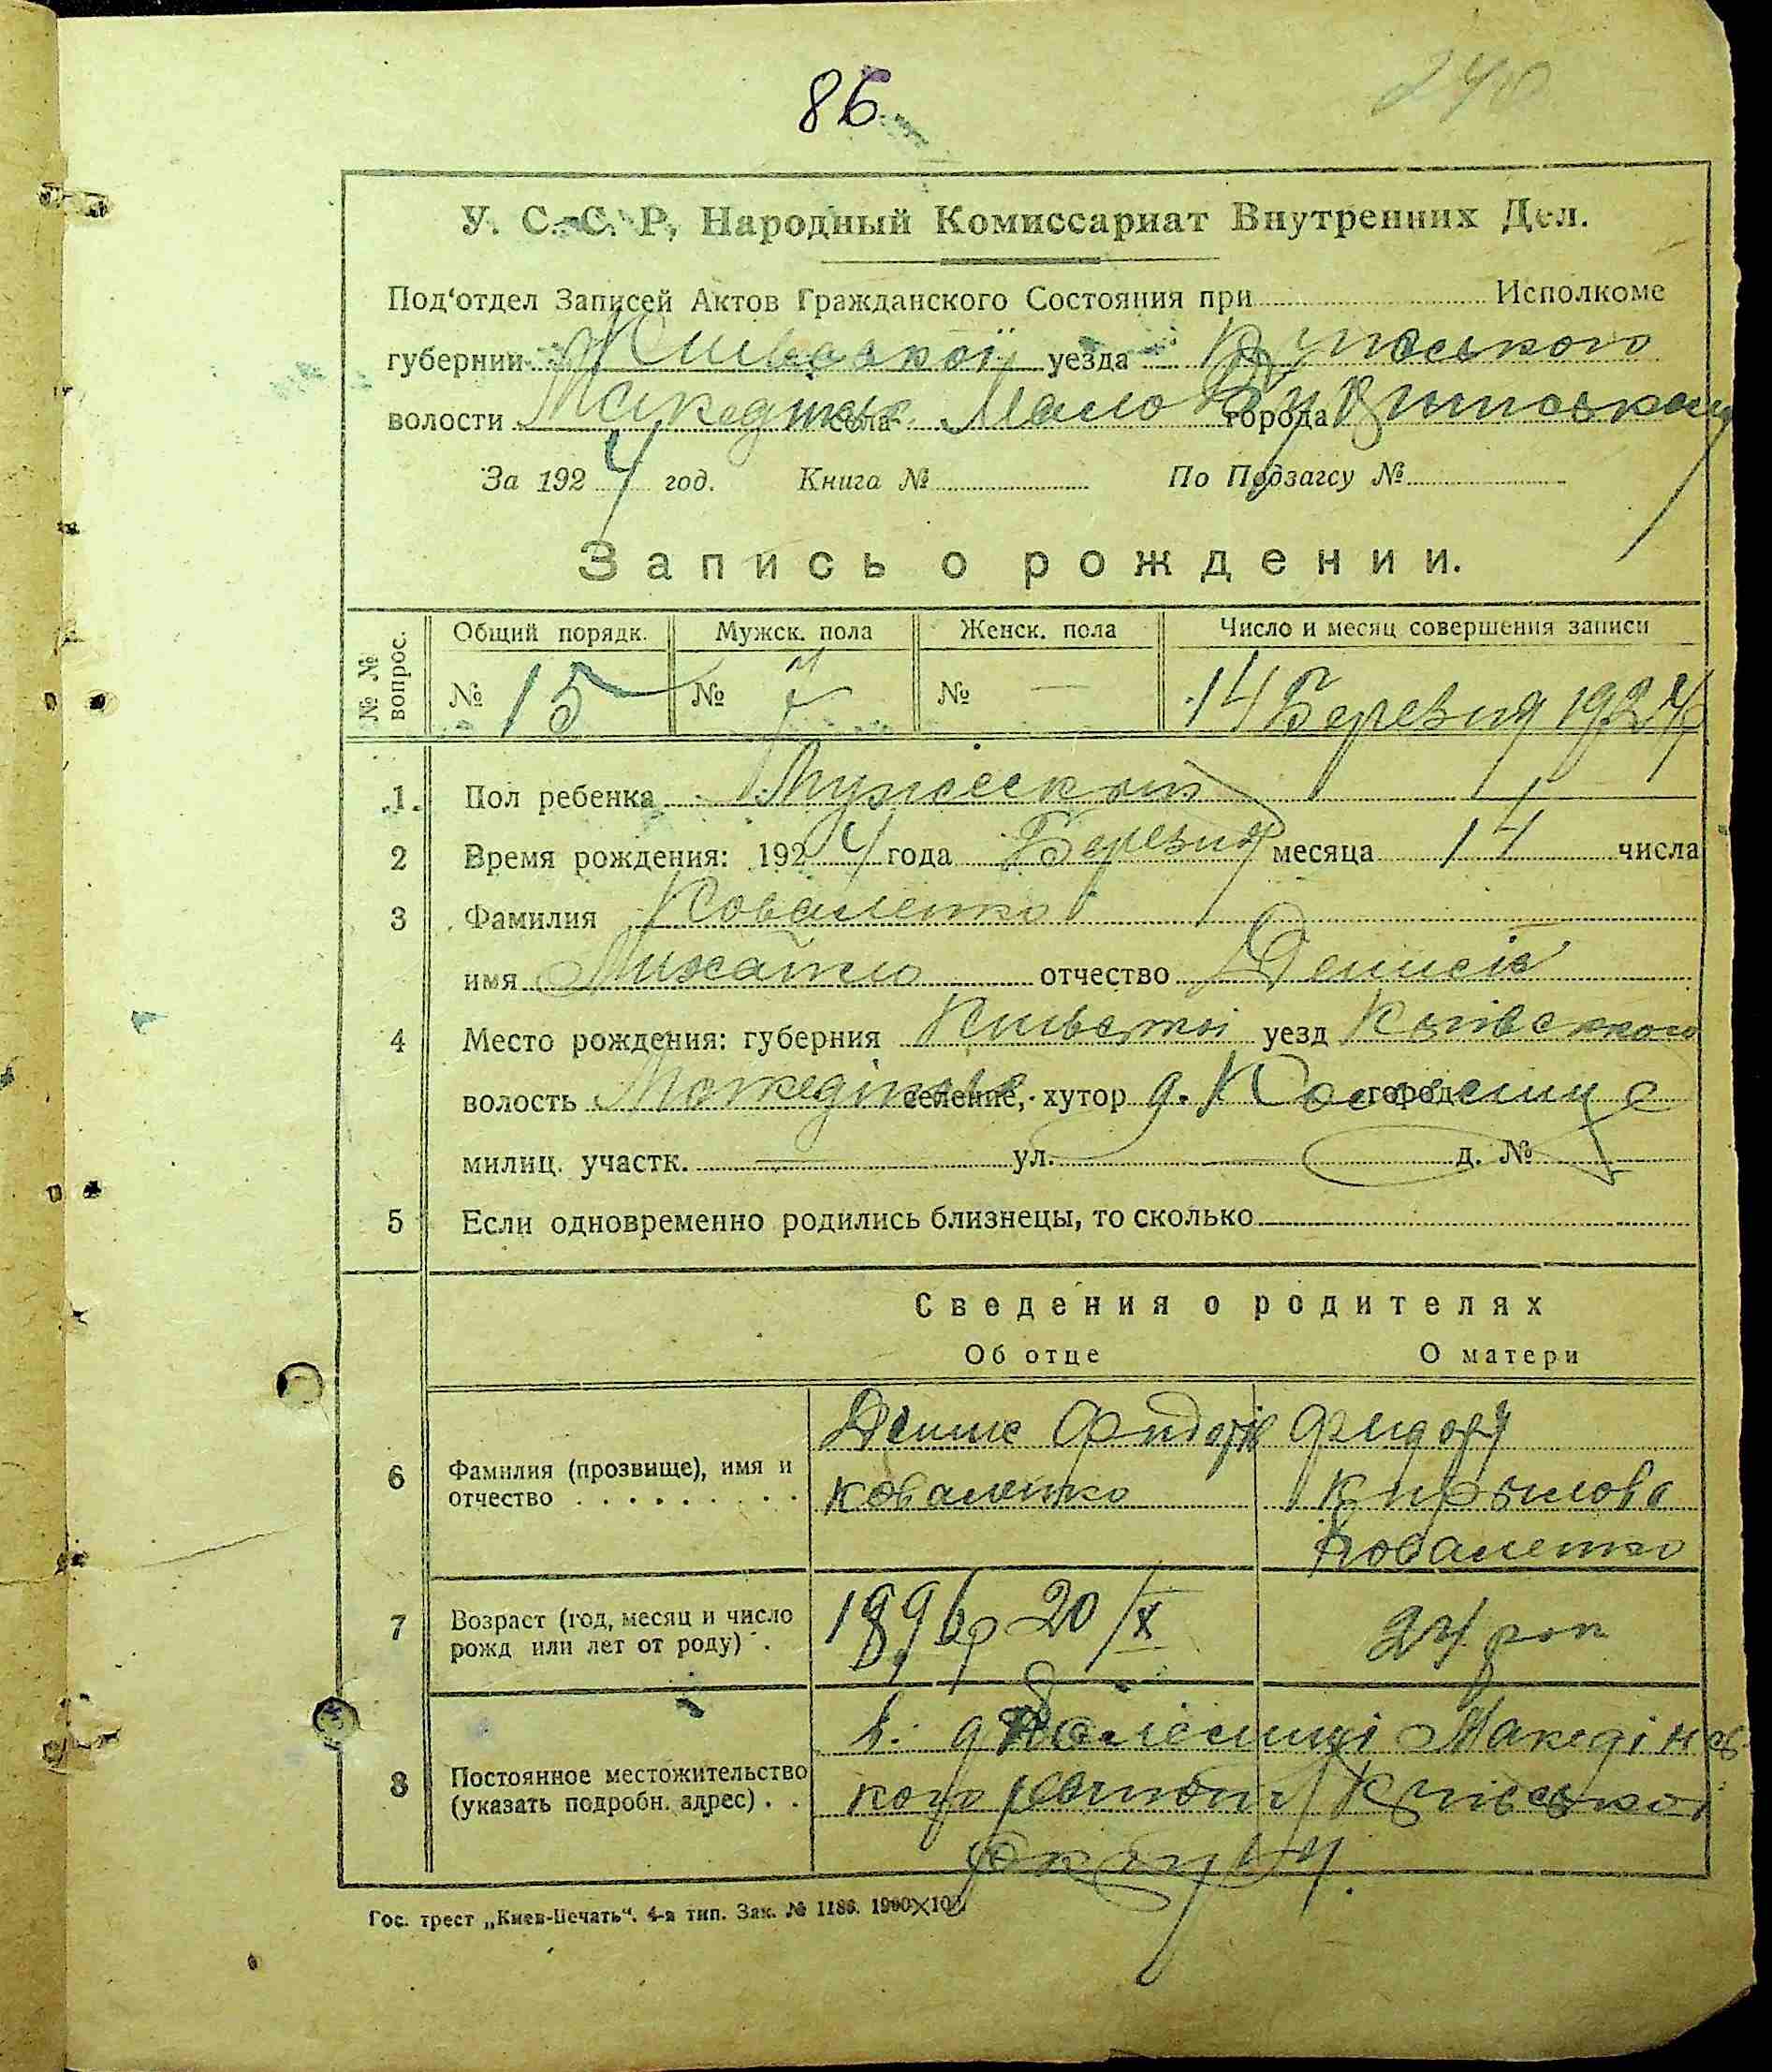 86
240
У. С. С. Р. Народный Комиссариат Внутренних Дел.
Под'отдел Записей Актов Гражданского Состояния при Исполкоме
губернии Киивської уезда
волости села Мало города
За 1924 год. Книга № По Подзагсу №
Запись о рождении.
№ № вопрос. Общий порядк. Мужск. пола Женск. пола Число и месяц совершения записи
№ 15 № 7 № — 14 Березня 1924
1 Пол ребенка Мужеский
2 Время рождения: 1924 года Березня месяца 14 числа
3 Фамилия Коваленко
имя Михайло отчество Денисів
4 Место рождения: губерния уезд
волость селение, хутор д. город
милиц. участк. — ул. — д. №
5 Если одновременно родились близнецы, то сколько
Сведения о родителях
Об отце О матери
6 Фамилия (прозвище), имя и отчество Денис Коваленко Коваленко
7 Возраст (год, месяц и число рожд или лет от роду) 1896р 20/X 24 рок
8 Постоянное местожительство (указать подробн. адрес) Македінсь
кого
округу.
Гос. трест „Киев-Печать“. 4-я тип. Зак. № 1186. 1900×100